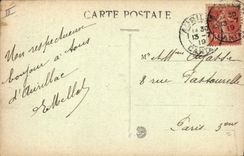 CARTE POSTALE
Mon respectueux
bonjour à tous
d'Aurillac
EMellot
M. & Mme
8 rue Pastourelle
Paris 3me